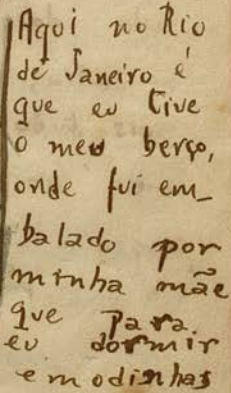 Aqui no Rio
de Janeiro é
que eu tive
o meu berço,
onde fui em_
balado por
minha mãe
que para
eu dormir
e modinhas